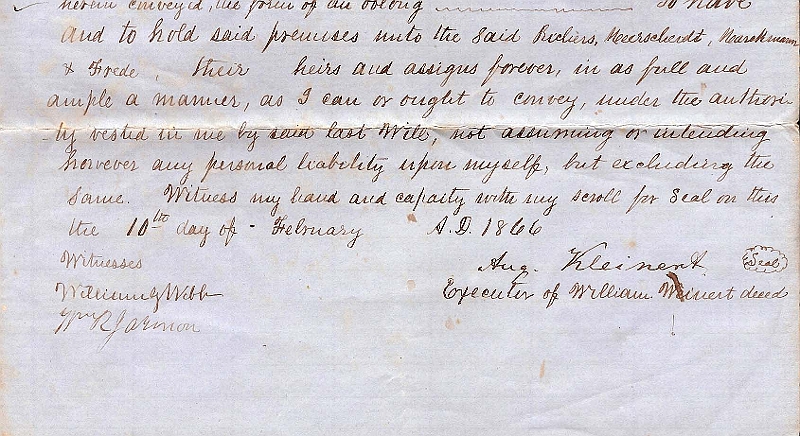 herein conveyed, the form of an oblong To have
and to hold said premises unto the Said Richers, Meerscheidt, Noackmann
& Frede, their heirs and assigns forever, in as full and
ample a manner, as I can or ought to convey, under the authori-
ty vested in me by said last Will, not assuming or intending
however any personal liability upon myself, but excluding the
same. Witness my hand and capacity with my scroll for Seal on this
the 10th day of February A.D. 1866
Witnesses
Aug. Kleinert Seal
William G Webb
Executor of William Weinert deced
Wm R Jarmon